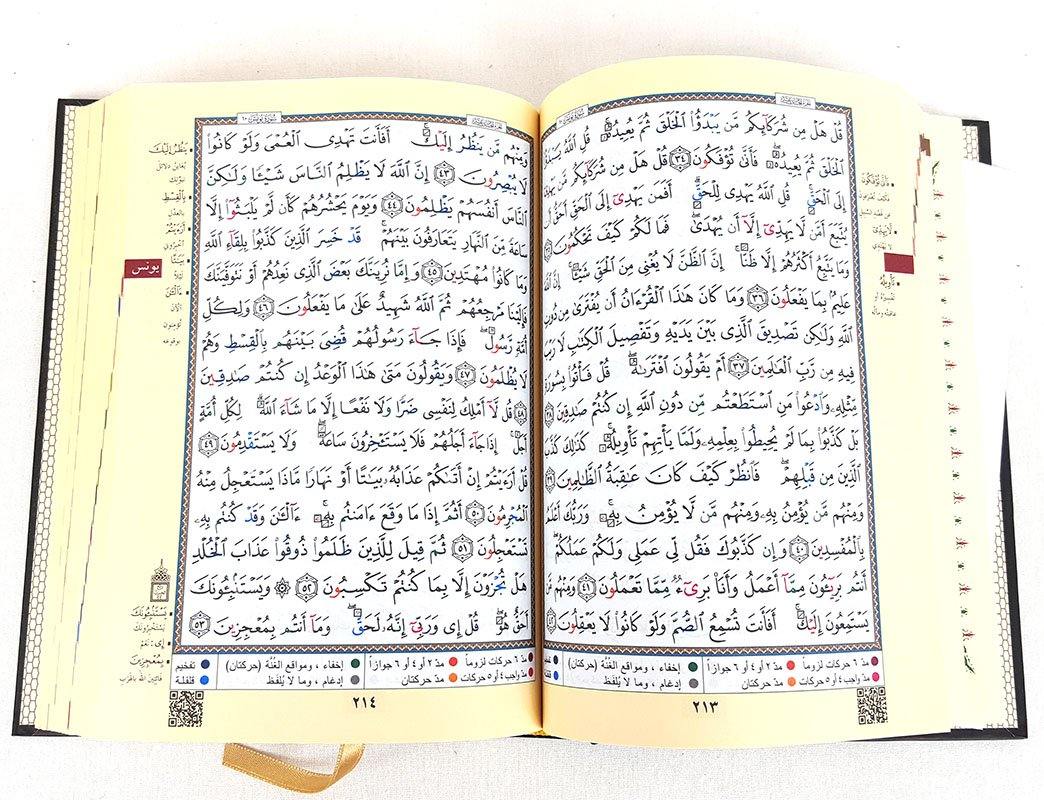 قُلْ هَلْ مِن شُرَكَآئِكُم مَّن يَبْدَؤُا۟ ٱلْخَلْقَ ثُمَّ يُعِيدُهُۥ ۚ قُلِ ٱللَّهُ
ٱلْخَلْقَ ثُمَّ يُعِيدُهُۥ ۖ فَأَنَّىٰ تُؤْفَكُونَ ٣٤ قُلْ هَلْ مِن شُرَكَآئِكُم
إِلَى ٱلْحَقِّ ۚ قُلِ ٱللَّهُ يَهْدِى لِلْحَقِّ ۗ أَفَمَن يَهْدِىٓ إِلَى ٱلْحَقِّ أَحَقُّ أَن
يُتَّبَعَ أَمَّن لَّا يَهِدِّىٓ إِلَّآ أَن يُهْدَىٰ ۖ فَمَا لَكُمْ كَيْفَ تَحْكُمُونَ
وَمَا يَتَّبِعُ أَكْثَرُهُمْ إِلَّا ظَنًّا ۚ إِنَّ ٱلظَّنَّ لَا يُغْنِى مِنَ ٱلْحَقِّ شَيْـًٔا ۚ إِنَّ ٱللَّهَ
عَلِيمٌۢ بِمَا يَفْعَلُونَ ٣٦ وَمَا كَانَ هَٰذَا ٱلْقُرْءَانُ أَن يُفْتَرَىٰ مِن دُونِ
ٱللَّهِ وَلَٰكِن تَصْدِيقَ ٱلَّذِى بَيْنَ يَدَيْهِ وَتَفْصِيلَ ٱلْكِتَٰبِ لَا رَيْبَ
فِيهِ مِن رَّبِّ ٱلْعَٰلَمِينَ ٣٧ أَمْ يَقُولُونَ ٱفْتَرَىٰهُ ۖ قُلْ فَأْتُوا۟ بِسُورَةٍ
مِّثْلِهِۦ وَٱدْعُوا۟ مَنِ ٱسْتَطَعْتُم مِّن دُونِ ٱللَّهِ إِن كُنتُمْ صَٰدِقِينَ ٣٨
بَلْ كَذَّبُوا۟ بِمَا لَمْ يُحِيطُوا۟ بِعِلْمِهِۦ وَلَمَّا يَأْتِهِمْ تَأْوِيلُهُۥ ۚ كَذَٰلِكَ كَذَّبَ
ٱلَّذِينَ مِن قَبْلِهِمْ ۖ فَٱنظُرْ كَيْفَ كَانَ عَٰقِبَةُ ٱلظَّٰلِمِينَ ٣٩
وَمِنْهُم مَّن يُؤْمِنُ بِهِۦ وَمِنْهُم مَّن لَّا يُؤْمِنُ بِهِۦ ۚ وَرَبُّكَ أَعْلَمُ
بِٱلْمُفْسِدِينَ ٤٠ وَإِن كَذَّبُوكَ فَقُل لِّى عَمَلِى وَلَكُمْ عَمَلُكُمْ ۖ
أَنتُم بَرِيٓـُٔونَ مِمَّآ أَعْمَلُ وَأَنَا۠ بَرِىٓءٌ مِّمَّا تَعْمَلُونَ ٤١ وَمِنْهُم مَّن
يَسْتَمِعُونَ إِلَيْكَ ۚ أَفَأَنتَ تُسْمِعُ ٱلصُّمَّ وَلَوْ كَانُوا۟ لَا يَعْقِلُونَ ٤٢
مدّ ٦ حركات لزوماً مدّ ٢ أو ٤ أو ٦ جوازاً إخفاء ، ومواقع الغُنَّة (حركتان)
مدّ واجب ٤ أو ٥ حركات مدّ حركتان إدغام ، وما لا يُلفَظ
٢١٣
وَمِنْهُم مَّن يَنظُرُ إِلَيْكَ ۚ أَفَأَنتَ تَهْدِى ٱلْعُمْىَ وَلَوْ كَانُوا۟
لَا يُبْصِرُونَ ٤٣ إِنَّ ٱللَّهَ لَا يَظْلِمُ ٱلنَّاسَ شَيْـًٔا وَلَٰكِنَّ
ٱلنَّاسَ أَنفُسَهُمْ يَظْلِمُونَ ٤٤ وَيَوْمَ يَحْشُرُهُمْ كَأَن لَّمْ يَلْبَثُوٓا۟ إِلَّا
سَاعَةً مِّنَ ٱلنَّهَارِ يَتَعَارَفُونَ بَيْنَهُمْ ۚ قَدْ خَسِرَ ٱلَّذِينَ كَذَّبُوا۟ بِلِقَآءِ ٱللَّهِ
وَمَا كَانُوا۟ مُهْتَدِينَ ٤٥ وَإِمَّا نُرِيَنَّكَ بَعْضَ ٱلَّذِى نَعِدُهُمْ أَوْ نَتَوَفَّيَنَّكَ
فَإِلَيْنَا مَرْجِعُهُمْ ثُمَّ ٱللَّهُ شَهِيدٌ عَلَىٰ مَا يَفْعَلُونَ ٤٦ وَلِكُلِّ
أُمَّةٍ رَّسُولٌ ۖ فَإِذَا جَآءَ رَسُولُهُمْ قُضِىَ بَيْنَهُم بِٱلْقِسْطِ وَهُمْ
لَا يُظْلَمُونَ ٤٧ وَيَقُولُونَ مَتَىٰ هَٰذَا ٱلْوَعْدُ إِن كُنتُمْ صَٰدِقِينَ
٤٨ قُل لَّآ أَمْلِكُ لِنَفْسِى ضَرًّا وَلَا نَفْعًا إِلَّا مَا شَآءَ ٱللَّهُ ۗ لِكُلِّ أُمَّةٍ
أَجَلٌ ۚ إِذَا جَآءَ أَجَلُهُمْ فَلَا يَسْتَـْٔخِرُونَ سَاعَةً ۖ وَلَا يَسْتَقْدِمُونَ ٤٩
قُلْ أَرَءَيْتُمْ إِنْ أَتَىٰكُمْ عَذَابُهُۥ بَيَٰتًا أَوْ نَهَارًا مَّاذَا يَسْتَعْجِلُ مِنْهُ
ٱلْمُجْرِمُونَ ٥٠ أَثُمَّ إِذَا مَا وَقَعَ ءَامَنتُم بِهِۦٓ ۚ ءَآلْـَٰٔنَ وَقَدْ كُنتُم بِهِۦ
تَسْتَعْجِلُونَ ٥١ ثُمَّ قِيلَ لِلَّذِينَ ظَلَمُوا۟ ذُوقُوا۟ عَذَابَ ٱلْخُلْدِ
هَلْ تُجْزَوْنَ إِلَّا بِمَا كُنتُمْ تَكْسِبُونَ ٥٢ ۞ وَيَسْتَنۢبِـُٔونَكَ
أَحَقٌّ هُوَ ۖ قُلْ إِى وَرَبِّىٓ إِنَّهُۥ لَحَقٌّ ۖ وَمَآ أَنتُم بِمُعْجِزِينَ ٥٣
مدّ ٦ حركات لزوماً مدّ ٢ أو ٤ أو ٦ جوازاً إخفاء ، ومواقع الغُنَّة (حركتان) تفخيم
مدّ واجب ٤ أو ٥ حركات مدّ حركتان إدغام ، وما لا يُلفَظ قلقلة
٢١٤
يونس